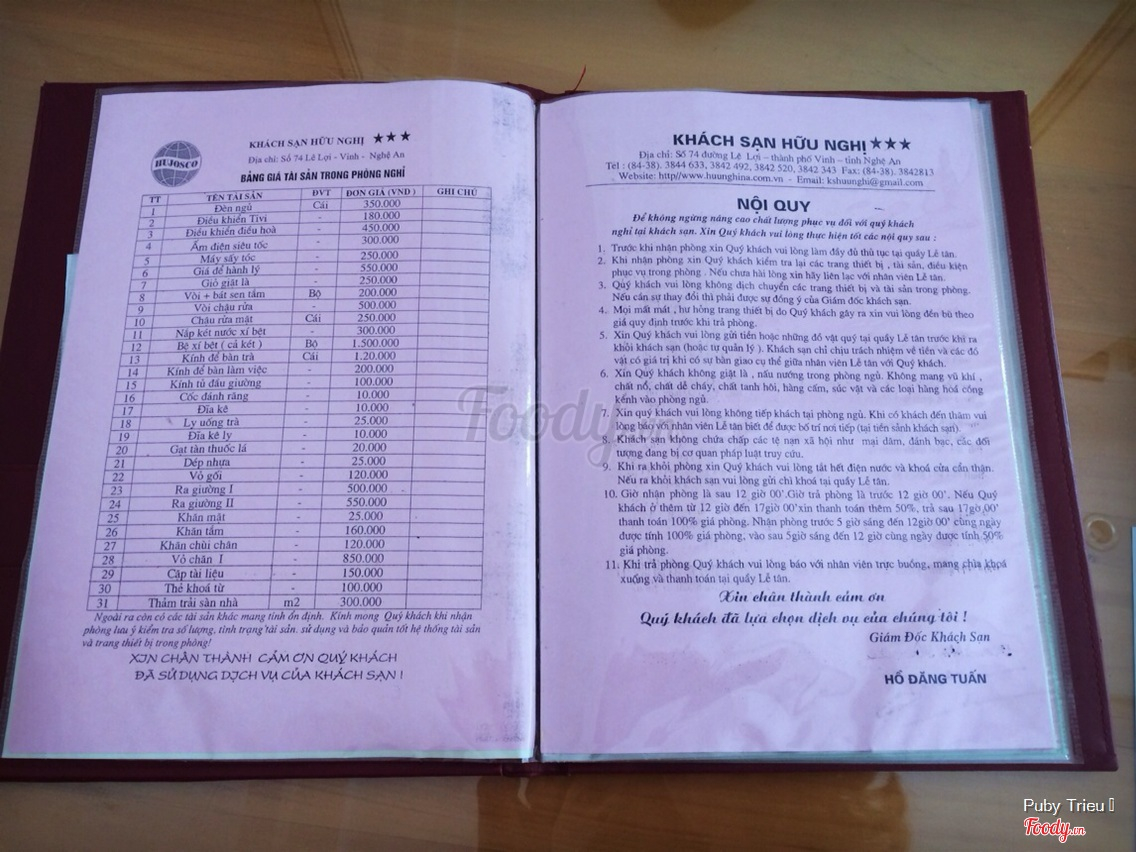 HUJOSCO
KHÁCH SẠN HỮU NGHỊ ★★★
Địa chỉ: Số 74 Lê Lợi - Vinh - Nghệ An
BẢNG GIÁ TÀI SẢN TRONG PHÒNG NGHỈ
TT TÊN TÀI SẢN ĐVT ĐƠN GIÁ (VNĐ) GHI CHÚ
1 Đèn ngủ Cái 350.000
2 Điều khiển Tivi - 180.000
3 Điều khiển điều hoà - 450.000
4 Ấm điện siêu tốc - 300.000
5 Máy sấy tóc - 250.000
6 Giá để hành lý - 550.000
7 Giỏ giặt là - 250.000
8 Vòi + bát sen tắm Bộ 200.000
9 Vòi chậu rửa - 500.000
10 Chậu rửa mặt Cái 250.000
11 Nắp két nước xí bệt - 300.000
12 Bệ xí bệt ( cả két ) Bộ 1.500.000
13 Kính để bàn trà Cái 1.20.000
14 Kính để bàn làm việc - 200.000
15 Kính tủ đầu giường - 100.000
16 Cốc đánh răng - 10.000
17 Đĩa kê - 10.000
18 Ly uống trà - 25.000
19 Đĩa kê ly - 10.000
20 Gạt tàn thuốc lá - 20.000
21 Dép nhựa - 25.000
22 Vỏ gối - 120.000
23 Ra giường I - 500.000
24 Ra giường II - 550.000
25 Khăn mặt - 25.000
26 Khăn tắm - 160.000
27 Khăn chùi chân - 120.000
28 Vỏ chăn I - 850.000
29 Cặp tài liệu - 150.000
30 Thẻ khoá từ - 100.000
31 Thảm trải sàn nhà m2 300.000
Ngoài ra còn có các tài sản khác mang tính ổn định. Kính mong Quý khách khi nhận
phòng lưu ý kiểm tra số lượng, tình trạng tài sản. sử dụng và bảo quản tốt hệ thống tài sản
và trang thiết bị trong phòng!
XIN CHÂN THÀNH CẢM ƠN QUÝ KHÁCH
ĐÃ SỬ DỤNG DỊCH VỤ CỦA KHÁCH SẠN !
KHÁCH SẠN HỮU NGHỊ ★★★
Địa chỉ: Số 74 đường Lê Lợi – thành phố Vinh – tỉnh Nghệ An
Tel : (84-38). 3844 633, 3842 492, 3842 520, 3842 343 Fax: (84-38). 3842813
Website: http//www.huunghina.com.vn - Email: kshuunghi@gmail.com
NỘI QUY
Để không ngừng nâng cao chất lượng phục vụ đối với quý khách
nghỉ tại khách sạn. Xin Quý khách vui lòng thực hiện tốt các nội quy sau :
1. Trước khi nhận phòng xin Quý khách vui lòng làm đầy đủ thủ tục tại quầy Lễ tân.
2. Khi nhận phòng xin Quý khách kiểm tra lại các trang thiết bị , tài sản, điều kiện
phục vụ trong phòng . Nếu chưa hài lòng xin hãy liên lạc với nhân viên Lễ tân.
3. Quý khách vui lòng không dịch chuyển các trang thiết bị và tài sản trong phòng.
Nếu cần sự thay đổi thì phải được sự đồng ý của Giám đốc khách sạn.
4. Mọi mất mát , hư hỏng trang thiết bị do Quý khách gây ra xin vui lòng đền bù theo
giá quy định trước khi trả phòng.
5. Xin Quý khách vui lòng gửi tiền hoặc những đồ vật quý tại quầy Lễ tân trước khi ra
khỏi khách sạn (hoặc tự quản lý ). Khách sạn chỉ chịu trách nhiệm về tiền và các đồ
vật có giá trị khi có sự bàn giao cụ thể giữa nhân viên Lễ tân với Quý khách.
6. Xin Quý khách không giặt là , nấu nướng trong phòng ngủ. Không mang vũ khí ,
chất nổ, chất dễ cháy, chất tanh hôi, hàng cấm, súc vật và các loại hàng hoá cồng
kềnh vào phòng ngủ.
7. Xin quý khách vui lòng không tiếp khách tại phòng ngủ. Khi có khách đến thăm vui
lòng báo với nhân viên Lễ tân biết để được bố trí nơi tiếp (tại tiền sảnh khách sạn).
8. Khách sạn không chứa chấp các tệ nạn xã hội như mại dâm, đánh bạc, các đối
tượng đang bị cơ quan pháp luật truy cứu.
9. Khi ra khỏi phòng xin Quý khách vui lòng tắt hết điện nước và khoá cửa cẩn thận.
Nếu ra khỏi khách sạn vui lòng gửi chì khoá tại quầy Lễ tân.
10. Giờ nhận phòng là sau 12 giờ 00'.Giờ trả phòng là trước 12 giờ 00'. Nếu Quý
khách ở thêm từ 12 giờ đến 17giờ 00'xin thanh toán thêm 50%, trả sau 17gờ 00'
thanh toán 100% giá phòng. Nhận phòng trước 5 giờ sáng đến 12giờ 00' cùng ngày
được tính 100% giá phòng, vào sau 5giờ sáng đến 12 giờ cùng ngày được tính 50%
giá phòng.
11. Khi trả phòng Quý khách vui lòng báo với nhân viên trực buồng, mang chìa khoá
xuống và thanh toán tại quầy Lễ tân.
Xin chân thành cảm ơn
Quý khách đã lựa chọn dịch vụ của chúng tôi !
Giám Đốc Khách Sạn
HỒ ĐĂNG TUẤN
Foody.vn
Puby Trieu
Foody.vn